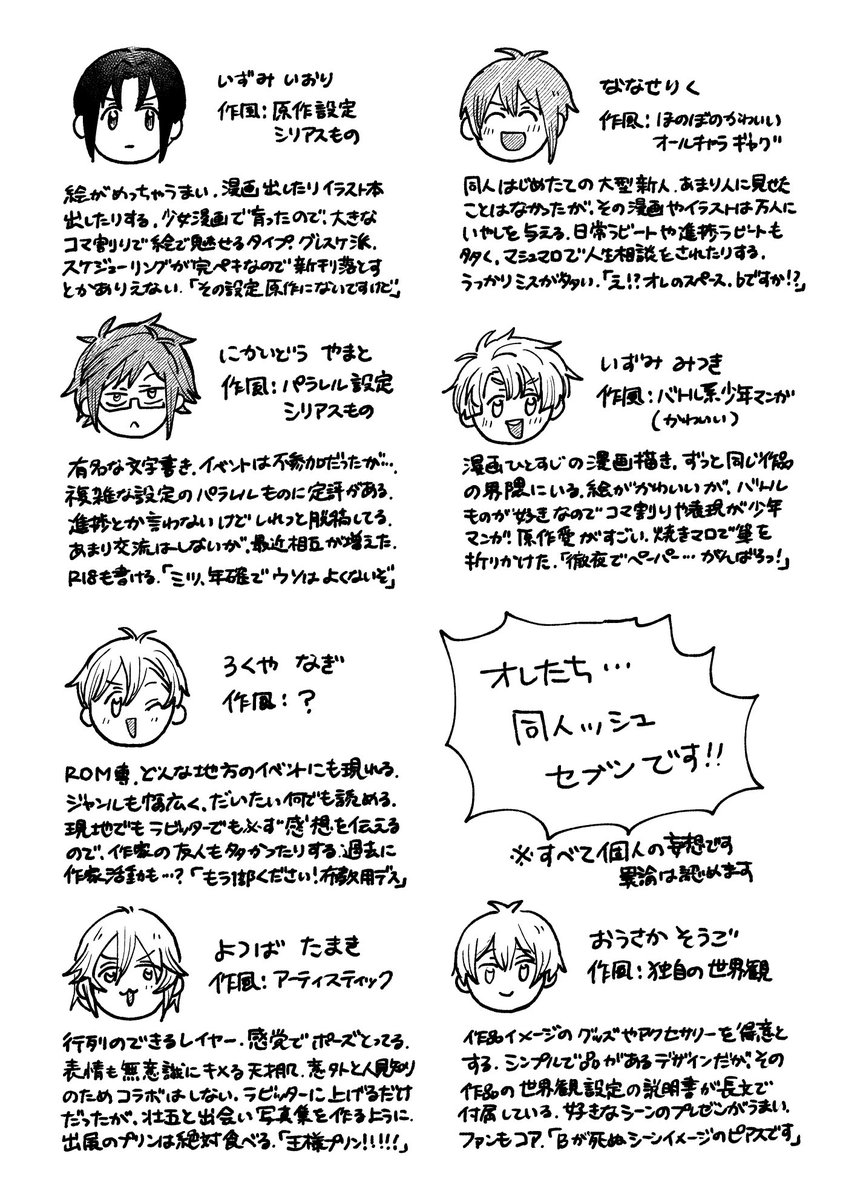 いずみ いおり
作風：原作設定
シリアスもの
絵がめっちゃうまい。漫画出したりイラスト本
出したりする。少女漫画で育ったので、大きな
コマ割りで絵で魅せるタイプ。グレスケ派。
スケジューリングが完ペキなので新刊落とす
とかありえない。「その設定原作にないですけど」
ななせりく
作風：ほのぼのかわいい
オールキャラギャグ
同人はじめたての大型新人。あまり人に見せた
ことはなかったが、その漫画やイラストは万人に
いやしを与える。日常ラビートや進捗ラビートも
多く、マシュマロで人生相談をされたりする。
うっかりミスが多い。「え!?オレのスペース、bですか!?」
にかいどう やまと
作風：パラレル設定
シリアスもの
有名な文字書き。イベントは不参加だったが…。
複雑な設定のパラレルものに定評がある。
進捗とか言わないけどしれっと脱稿してる。
あまり交流はしないが、最近相互が増えた。
R18も書ける。「ミツ、年確でウソはよくないぞ」
いずみ みつき
作風：バトル系少年マンガ
（かわいい）
漫画ひとすじの漫画描き。ずっと同じ作品
の界隈にいる。絵がかわいいが、バトル
ものが好きなのでコマ割りや表現が少年
マンガ。原作愛がすごい。焼きマロで筆を
折りかけた。「徹夜でペーパー…がんばろっ!」
ろくや なぎ
作風：？
ROM専。どんな地方のイベントにも現れる。
ジャンルも幅広く、だいたい何でも読める。
現地でもラビッターでも必ず感想を伝える
ので、作家の友人も多かったりする。過去に
作家活動も…?「もう1部ください!布教用デス」
オレたち…
同人ッシュ
セブンです!!
※すべて個人の妄想です
異論は認めます
よつば たまき
作風：アーティスティック
行列のできるレイヤー。感覚でポーズとってる。
表情も無意識にキメる天才。意外と人見知り
のためコラボはしない。ラビッターに上げるだけ
だったが、壮五と出会い写真集を作るように。
出展のプリンは絶対食べる。「王様プリン!!!!!」
おうさか そうご
作風：独自の世界観
作品イメージのグッズやアクセサリーを得意と
する。シンプルで品があるデザインだが、その
作品の世界観設定の説明書が長文で
付属している。好きなシーンのプレゼンがうまい。
ファンもコア。「Bが死ぬシーンイメージのピアスです」